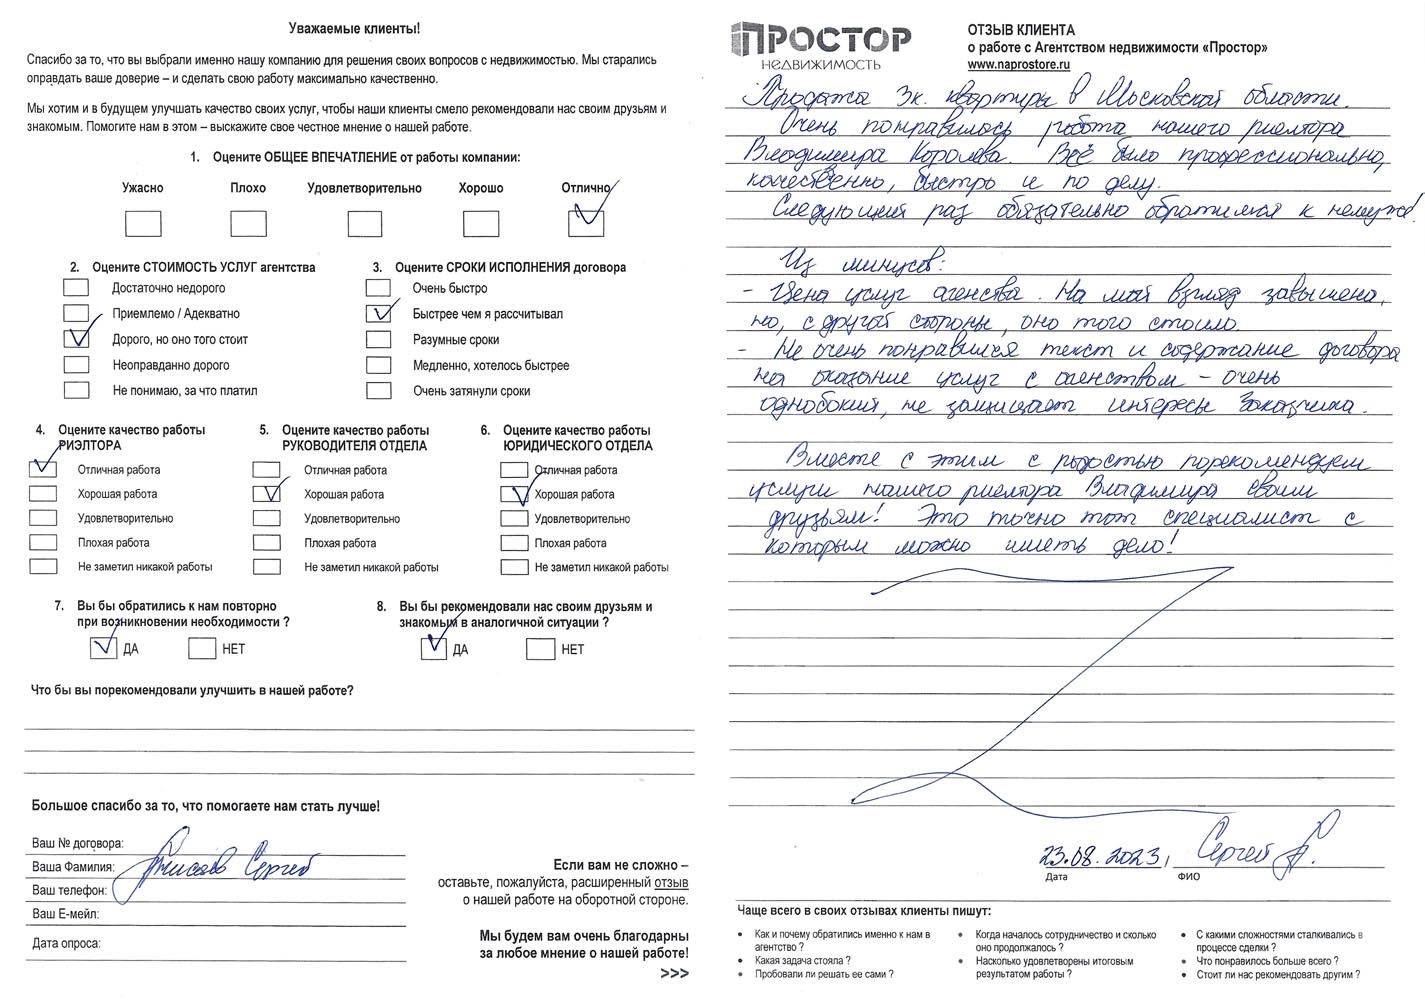 Уважаемые клиенты!
Спасибо за то, что вы выбрали именно нашу компанию для решения своих вопросов с недвижимостью. Мы старались
оправдать ваше доверие – и сделать свою работу максимально качественно.
Мы хотим и в будущем улучшать качество своих услуг, чтобы наши клиенты смело рекомендовали нас своим друзьям и
знакомым. Помогите нам в этом – выскажите свое честное мнение о нашей работе.
1. Оцените ОБЩЕЕ ВПЕЧАТЛЕНИЕ от работы компании:
Ужасно Плохо Удовлетворительно Хорошо Отлично
2. Оцените СТОИМОСТЬ УСЛУГ агентства
Достаточно недорого
Приемлемо / Адекватно
Дорого, но оно того стоит
Неоправданно дорого
Не понимаю, за что платил
3. Оцените СРОКИ ИСПОЛНЕНИЯ договора
Очень быстро
Быстрее чем я рассчитывал
Разумные сроки
Медленно, хотелось быстрее
Очень затянули сроки
4. Оцените качество работы
РИЭЛТОРА
Отличная работа
Хорошая работа
Удовлетворительно
Плохая работа
Не заметил никакой работы
5. Оцените качество работы
РУКОВОДИТЕЛЯ ОТДЕЛА
Отличная работа
Хорошая работа
Удовлетворительно
Плохая работа
Не заметил никакой работы
6. Оцените качество работы
ЮРИДИЧЕСКОГО ОТДЕЛА
Отличная работа
Хорошая работа
Удовлетворительно
Плохая работа
Не заметил никакой работы
7. Вы бы обратились к нам повторно
при возникновении необходимости ?
ДА НЕТ
8. Вы бы рекомендовали нас своим друзьям и
знакомым в аналогичной ситуации ?
ДА НЕТ
Что бы вы порекомендовали улучшить в нашей работе?
Большое спасибо за то, что помогаете нам стать лучше!
Ваш № договора:
Ваша Фамилия: Сергей
Ваш телефон:
Ваш Е-мейл:
Дата опроса:
Если вам не сложно –
оставьте, пожалуйста, расширенный отзыв
о нашей работе на оборотной стороне.
Мы будем вам очень благодарны
за любое мнение о нашей работе!
>>>
ПРОСТОР
НЕДВИЖИМОСТЬ
ОТЗЫВ КЛИЕНТА
о работе с Агентством недвижимости «Простор»
www.naprostore.ru
Продажа 3к. квартиры в Московской области.
Очень понравилось работа нашего риелтора
Владимира Королева. Всё было профессионально,
качественно, быстро и по делу.
Следующий раз обязательно обратимся к нему же!
Из минусов:
- Цена услуг агенства. На мой взгляд завышена,
но, с другой стороны, оно того стоило.
- Не очень понравился текст и содержание договора
на оказание услуг с агенством – очень
однобокий, не защищает интересы Заказчика.
Вместе с этим с радостью порекомендуем
услуги нашего риелтора Владимира своим
друзьям! Это точно тот специалист с
которым можно иметь дело!
23.08.2023, Сергей
Дата ФИО
Чаще всего в своих отзывах клиенты пишут:
• Как и почему обратились именно к нам в
агентство ?
• Какая задача стояла ?
• Пробовали ли решать ее сами ?
• Когда началось сотрудничество и сколько
оно продолжалось ?
• Насколько удовлетворены итоговым
результатом работы ?
• С какими сложностями сталкивались в
процессе сделки ?
• Что понравилось больше всего ?
• Стоит ли нас рекомендовать другим ?